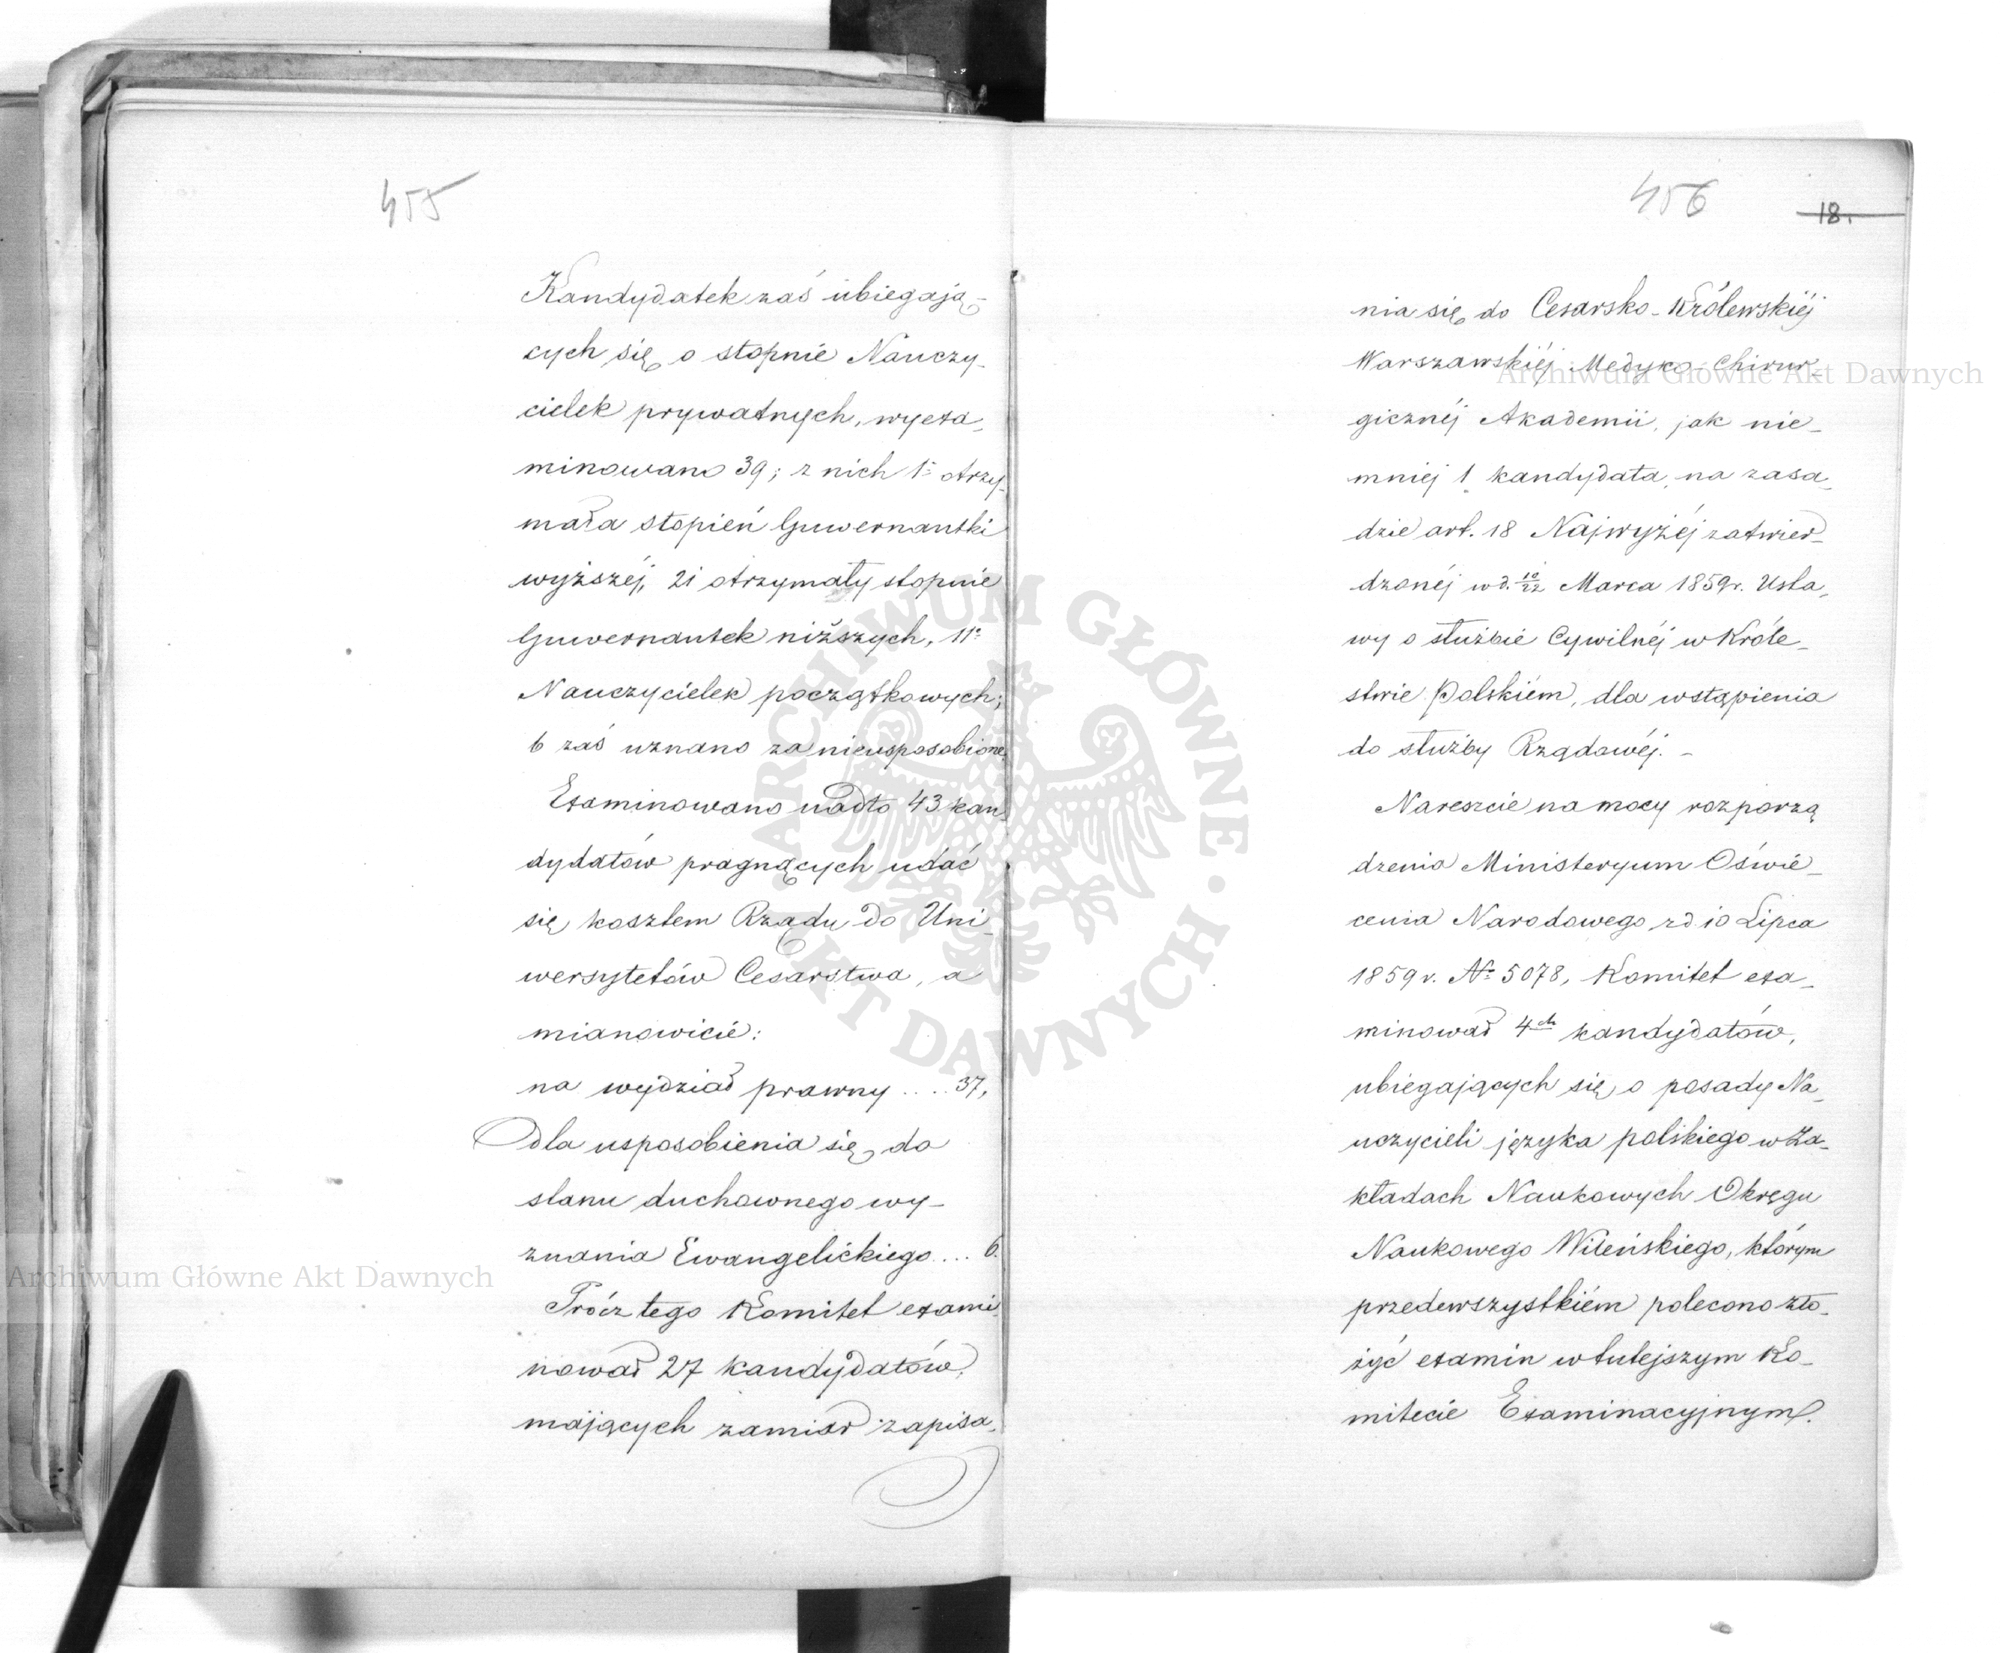 455
Kandydatek zaś ubiegają-
cych się o stopnie Nauczy-
cielek prywatnych, wyexa-
minowano 39; z nich 1 otrzy-
mała stopień Guwernantki
wyższéj, 21 otrzymały stopnie
Guwernantek niższych, 11
Nauczycielek początkowych;
6 zaś uznano za nieusposobione.
Examinowano nadto 43 kan-
dydatów pragnących udać
się kosztem Rządu do Uni-
wersytetów Cesarstwa, a
mianowicie:
na wydział prawny .... 37,
dla usposobienia się do
stanu duchownego wy-
znania Ewangelickiego ... 6.
Prócz tego Komitet exami-
nował 27 kandydatów,
mających zamiar zapisa-
456
18.
nia się do Cesarsko-Królewskiéj
Warszawskiéj Medyko-Chirur-
gicznéj Akademii, jak nie-
mniej 1 kandydata, na zasa-
dzie art. 18 Najwyżéj zatwier-
dzonéj w d. 10/22 Marca 1859 r. Usta-
wy o służbie Cywilnéj w Króle-
stwie Polskiém, dla wstąpienia
do służby Rządowéj. -
Nareszcie na mocy rozporzą
dzenia Ministeryum Oświe-
cenia Narodowego z d 10 Lipca
1859 r. № 5078, Komitet exa-
minował 4ch kandydatów,
ubiegających się o posady Na-
uczycieli języka polskiego w Za-
kładach Naukowych Okręgu
Naukowego Wileńskiego, którym
przedewszystkiém polecono zło-
żyć examin w tutejszym Ko-
mitecie Examinacyjnym.
Archiwum Główne Akt Dawnych
Archiwum Główne Akt Dawnych
ARCHIWUM GŁÓWNE AKT DAWNYCH